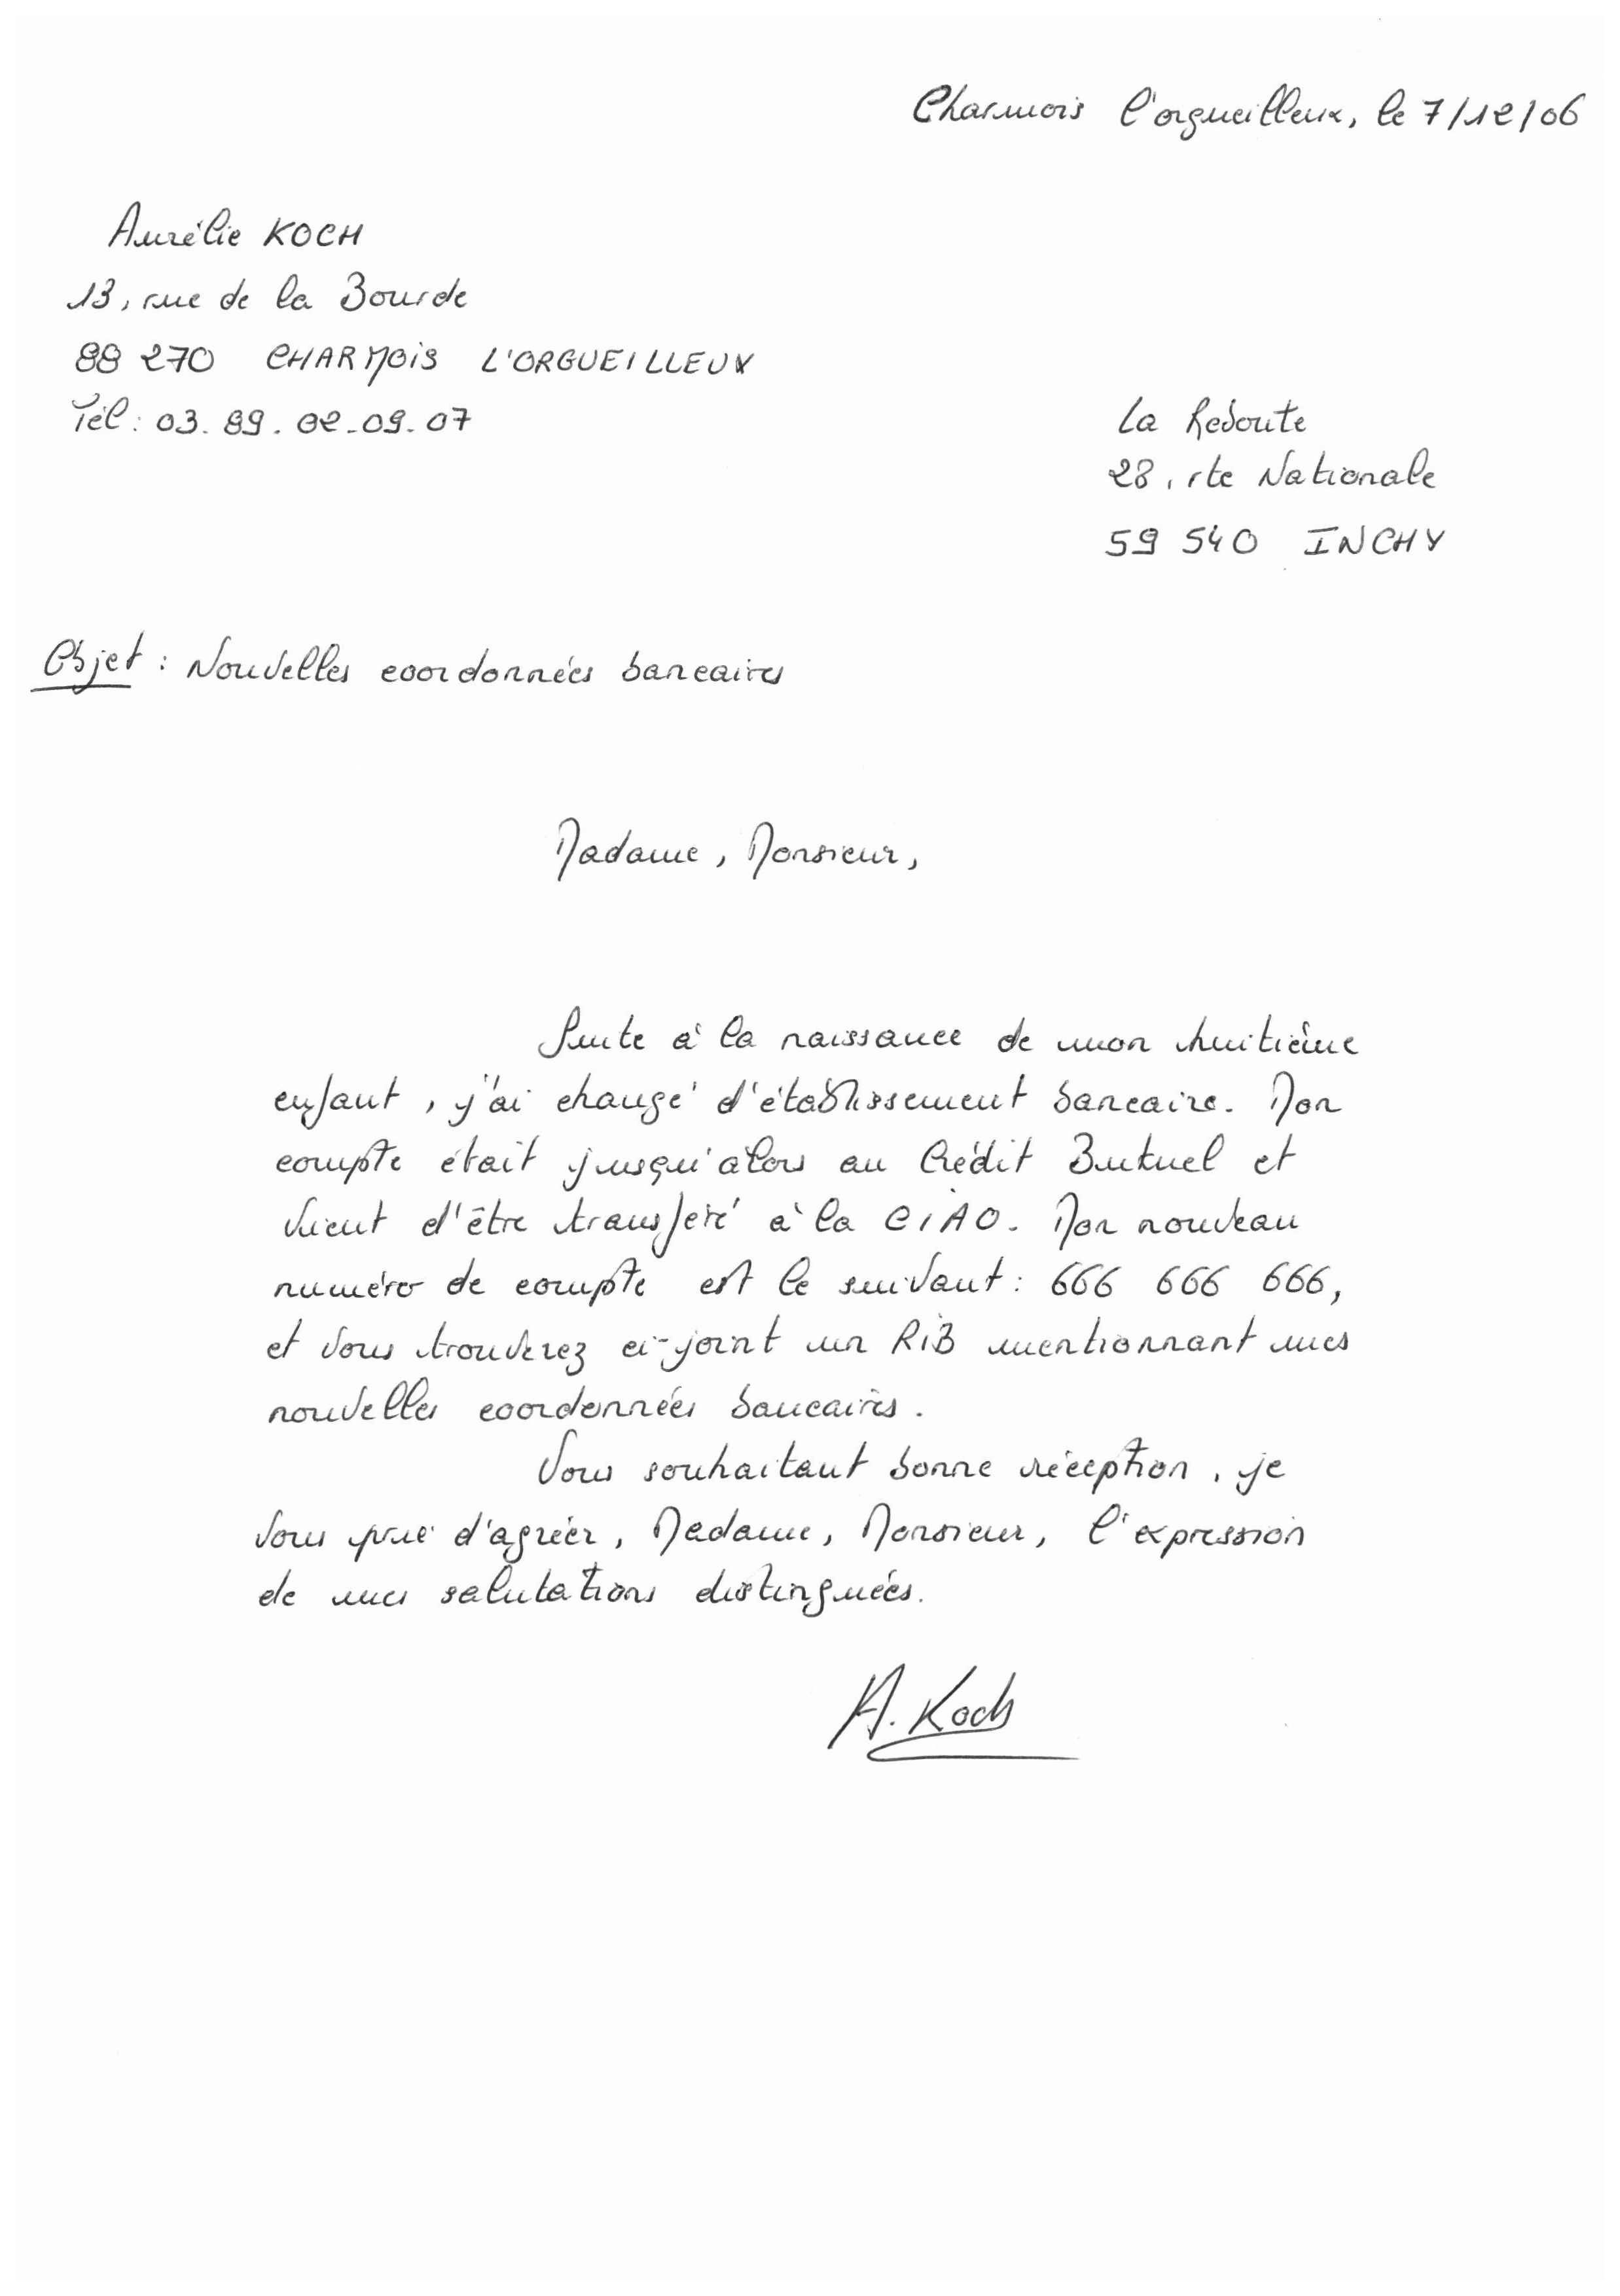 Charmois l'orgueilleux, le 7/12/06
Aurélie KOCH
13, rue de la Bourde
88 270 CHARMOIS L'ORGUEILLEUX
Tél : 03. 89. 02. 09. 07
La Redoute
28, rte Nationale
59 540 INCHY
Objet : Nouvelles coordonnées bancaires
Madame, Monsieur,
Suite à la naissance de mon huitième
enfant, j'ai changé d'établissement bancaire. Mon
compte était jusqu'alors au Crédit Butuel et
vient d'être transféré à la CIAO. Mon nouveau
numéro de compte est le suivant : 666 666 666,
et vous trouverez ci-joint un RIB mentionnant mes
nouvelles coordonnées bancaires.
Vous souhaitant bonne réception, je
vous prie d'agréer, Madame, Monsieur, l'expression
de mes salutations distinguées.
A. Koch